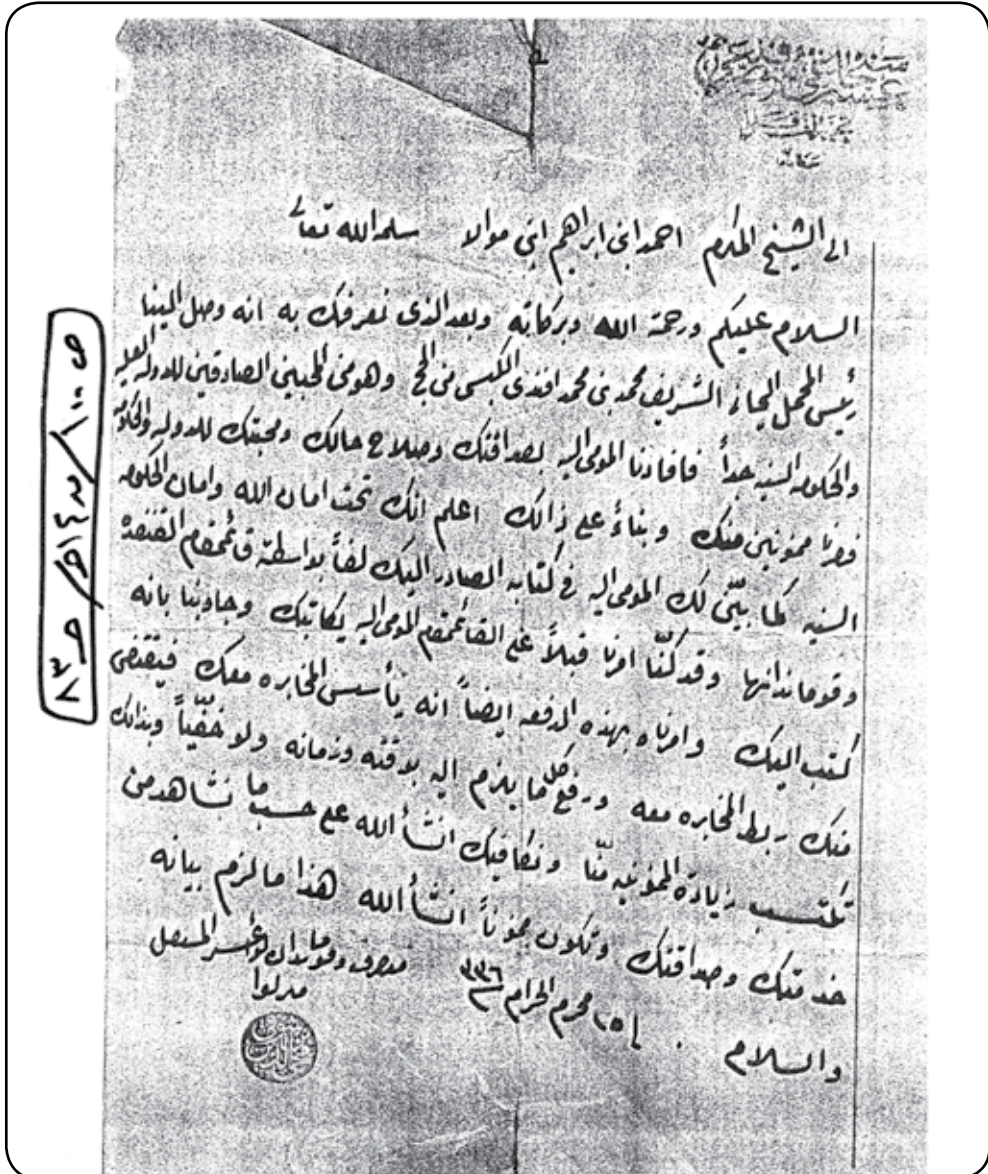 الى الشيخ المكرم احمد ابن ابراهيم ابن موالا سلمه الله تعالى
السلام عليكم ورحمة الله وبركاته وبعد الذى نعرفك به انه وصل الينا
رئيس المحمل الشريف محمد بن محمد افندى من الحج وهو من المحبين الصادقين للدوله العليه
والحكومه السنيه جداً فافادنا المومى اليه بصداقتك وصلاح حالك ومحبتك للدوله والحكومه
ممنونين منك وبناءً على ذالك اعلم انك تحت امان الله وامان الحكومه
السنيه كما بيّن لك المومى اليه فى كتابه الصادر اليك لفاً بواسطة قائمقام القنفده
وقوماندانها وقد كنّا امرنا قبلاً على القائمقام المومى اليه يكاتبك وجاوبنا بانه
كتب اليك وامرناه بهذه الدفعه ايضاً انه يأسس المخابره معك فيقتضى
منك ربط المخابره معه ورفع كل ما يلزم اليه بوقته وزمانه ولو خفيّاً وبذالك
تكتسب زيادة الممنونيه منّا ونكافيك انشأ الله على حسب ما نشاهد من
خدمتك وصداقتك وتكون ممنوناً انشأ الله هذا ما لزم بيانه
والسلام ٢٥ محرم الحرام ٣٣٦
متصرف وقوماندان عسير
ميرلوا